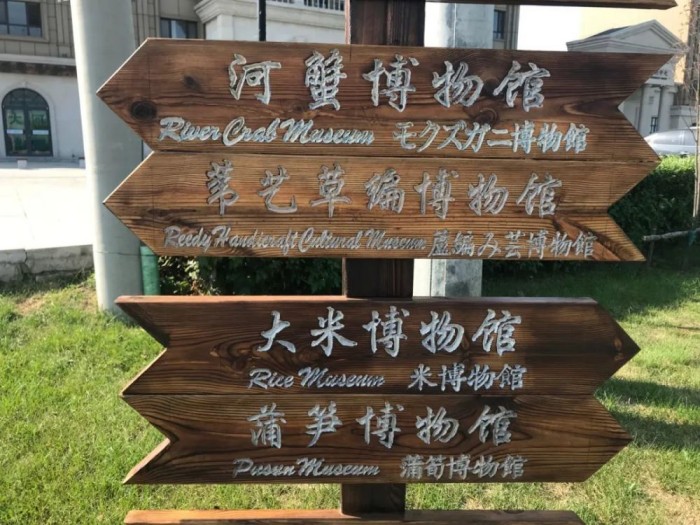 河蟹博物馆
River Crab Museum モクズガニ博物館
苇艺草编博物馆
Reedy Handicraft Cultural Museum 蘆編み芸博物館
大米博物馆
Rice Museum 米博物館
蒲笋博物馆
Pusun Museum 蒲筍博物館